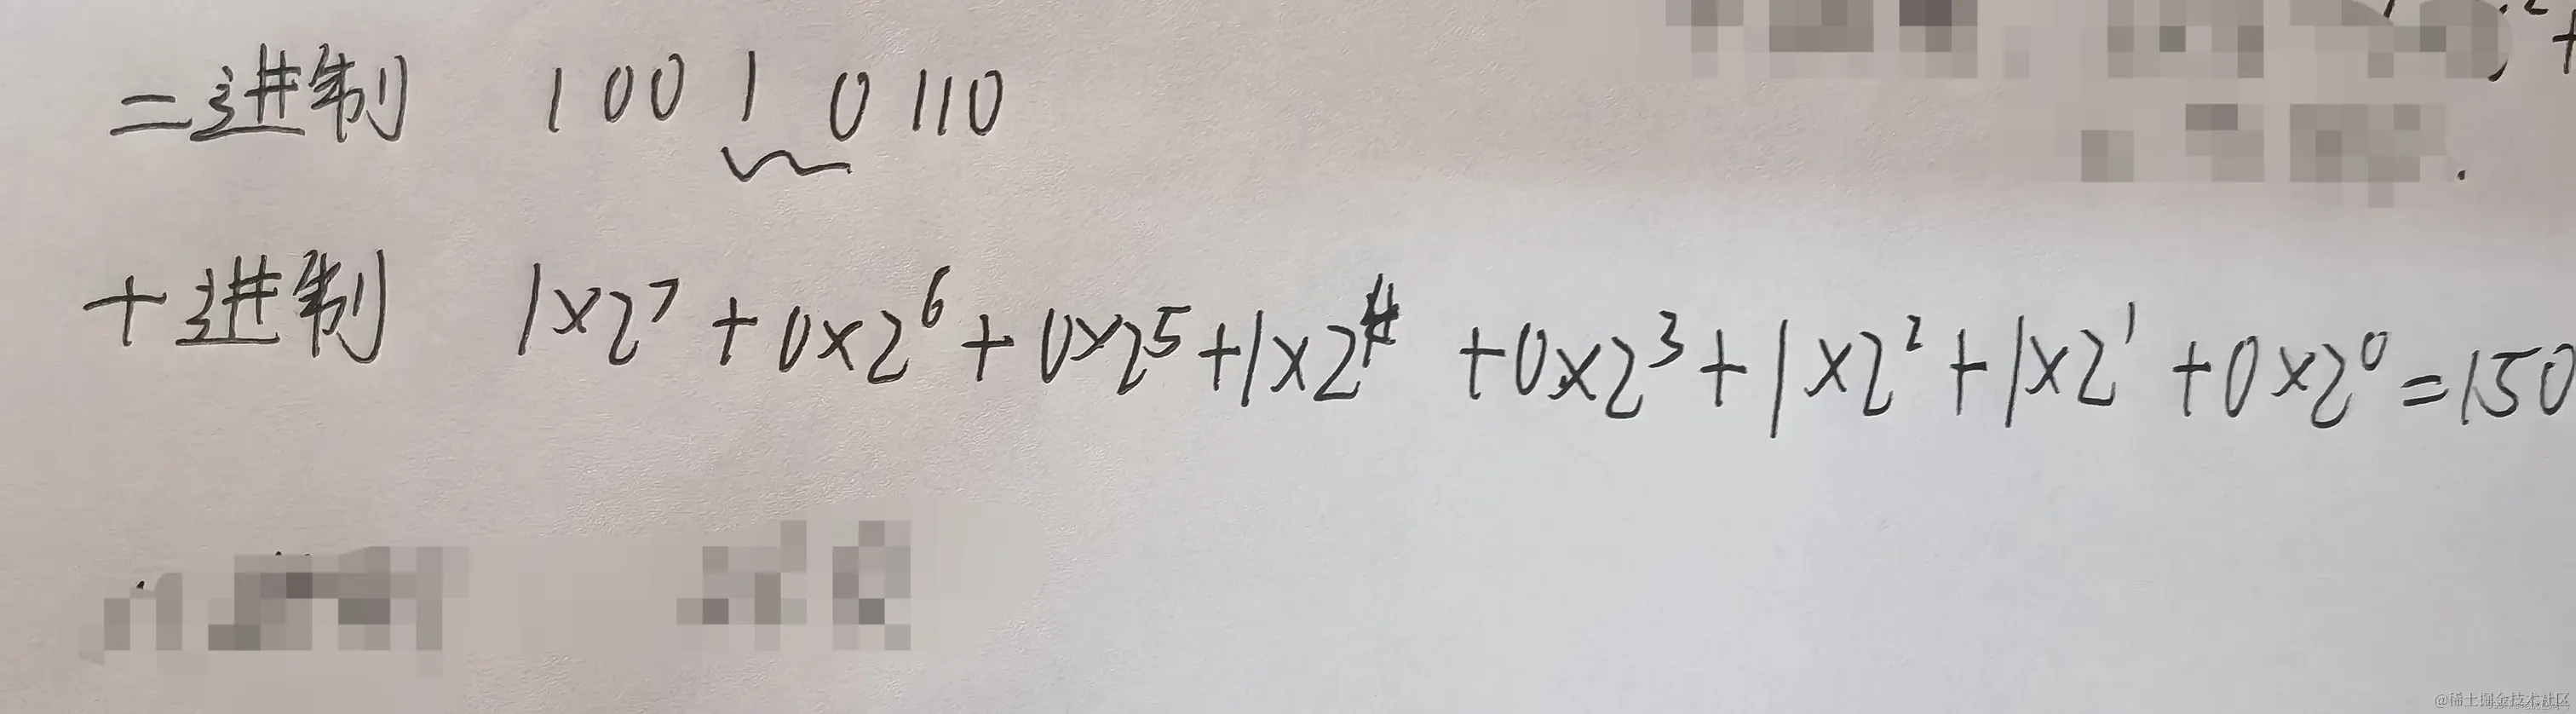 二进制 1001 0110
十进制 1×2⁷+0×2⁶+0×2⁵+1×2⁴+0×2³+1×2²+1×2¹+0×2⁰=150
@稀土掘金技术社区